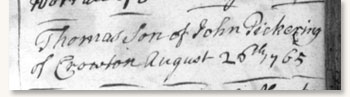 Thomas Son of John Pickering
of Crowton August 26th 1765